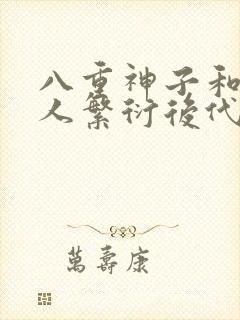 八重神子和
人繁衍後代
萬壽康